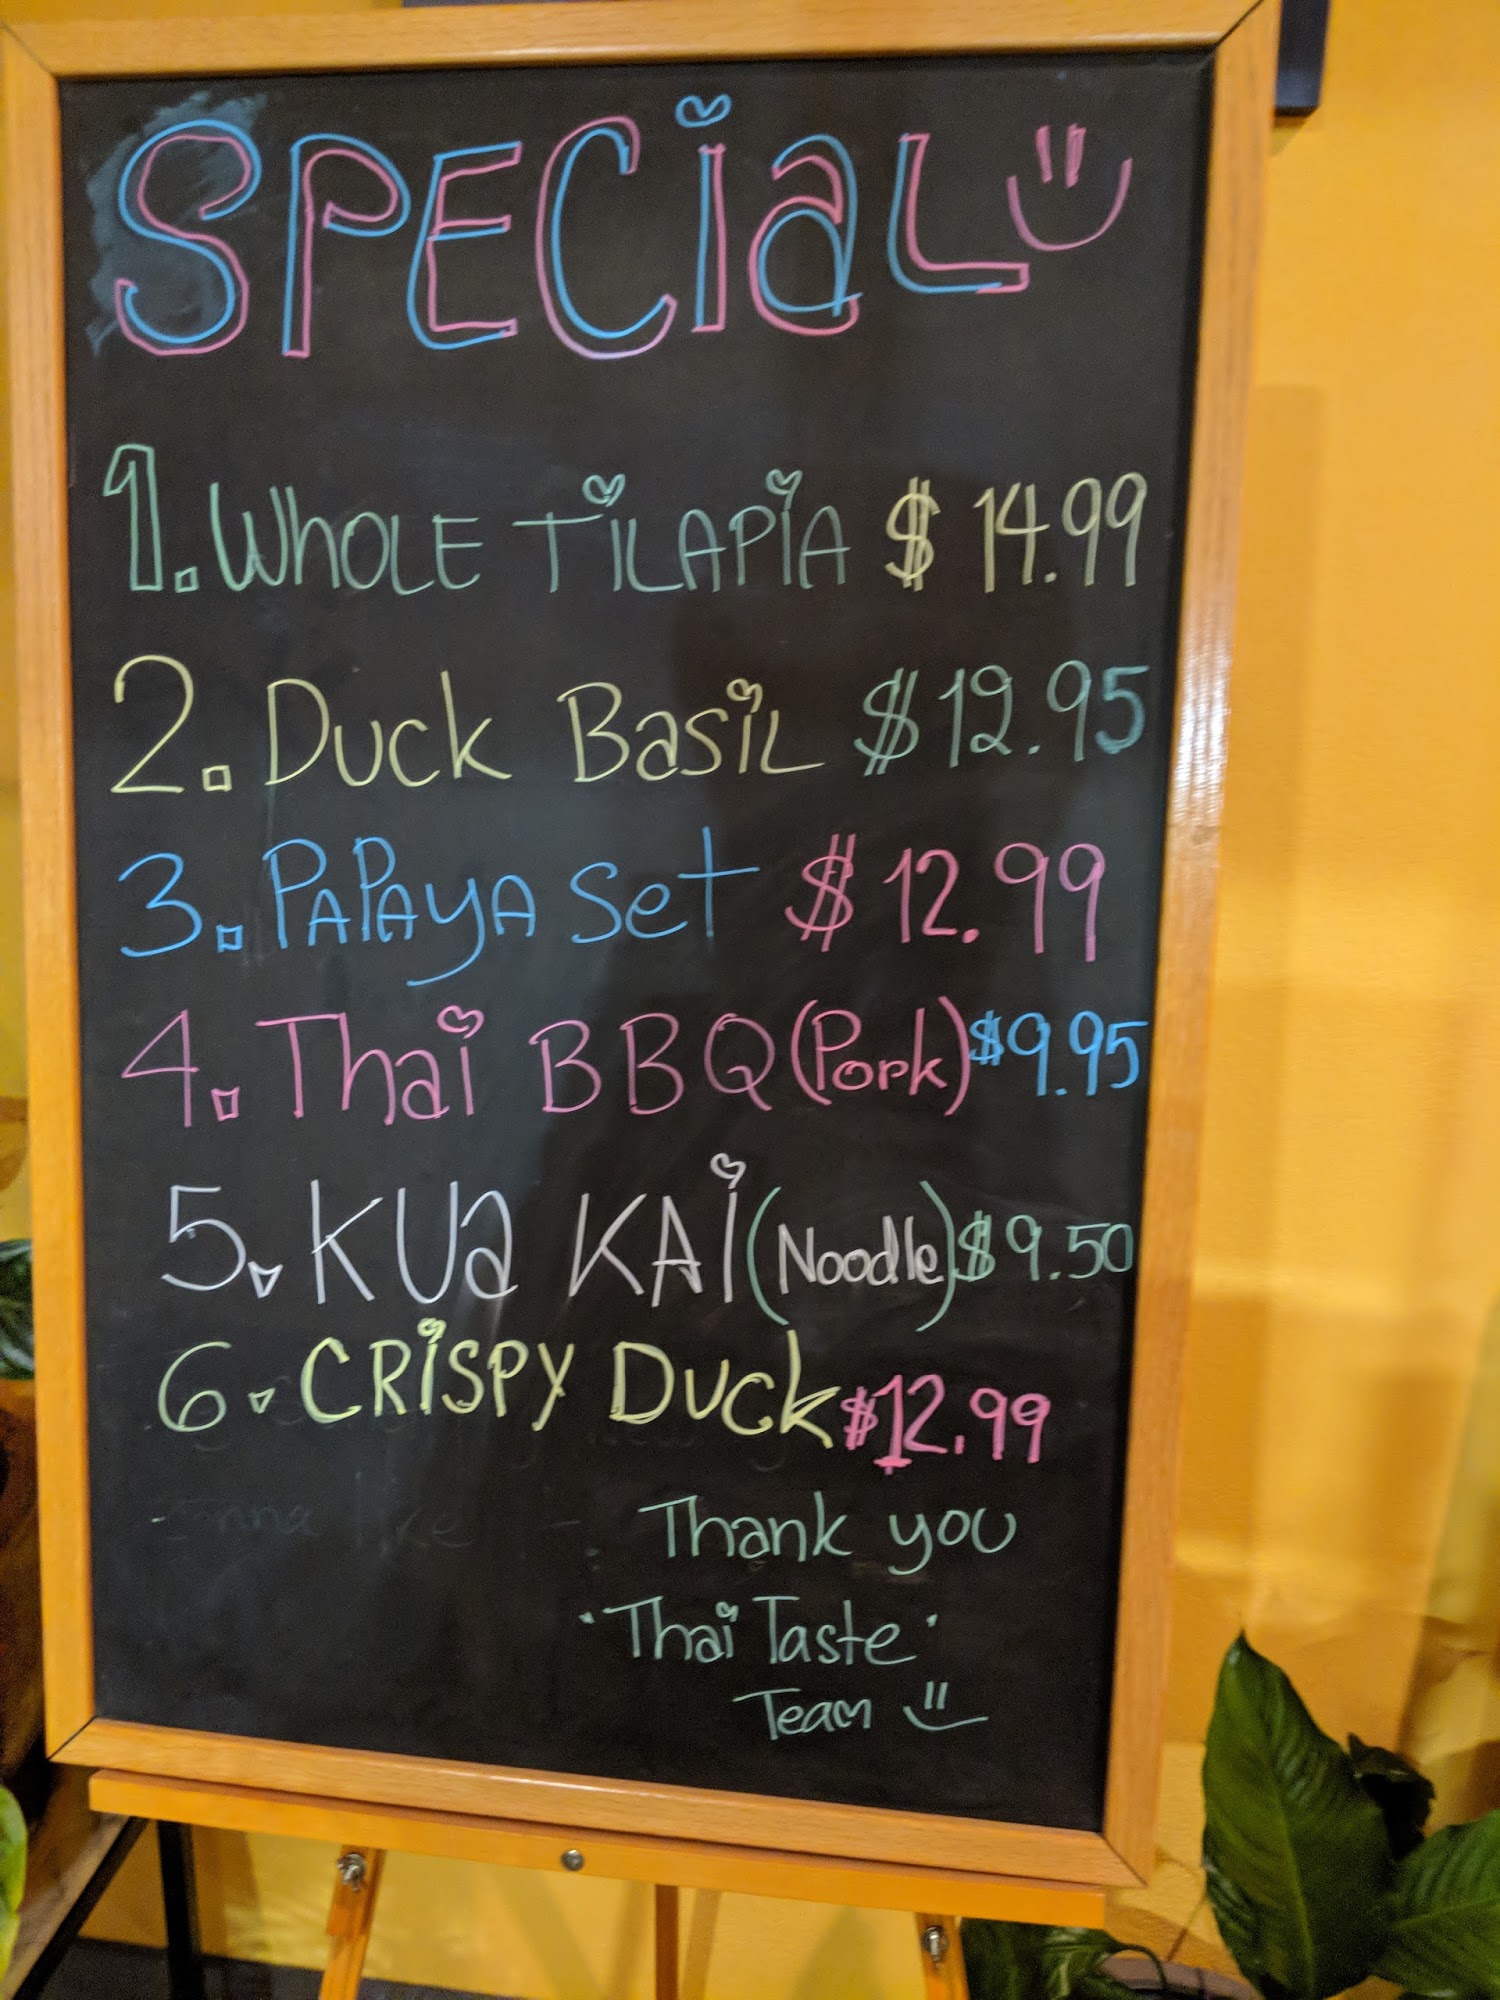 SPECiaL
1. WhOLE TiLAPiA $ 14.99
2. Duck BasiL $12.95
3. PAPAyA Set $12.99
4. Thai BBQ (Pork) $9.95
5. KUa KAi (Noodle) $9.50
6. CRiSPY Duck $12.99
Thank you
'Thai Taste'
Team